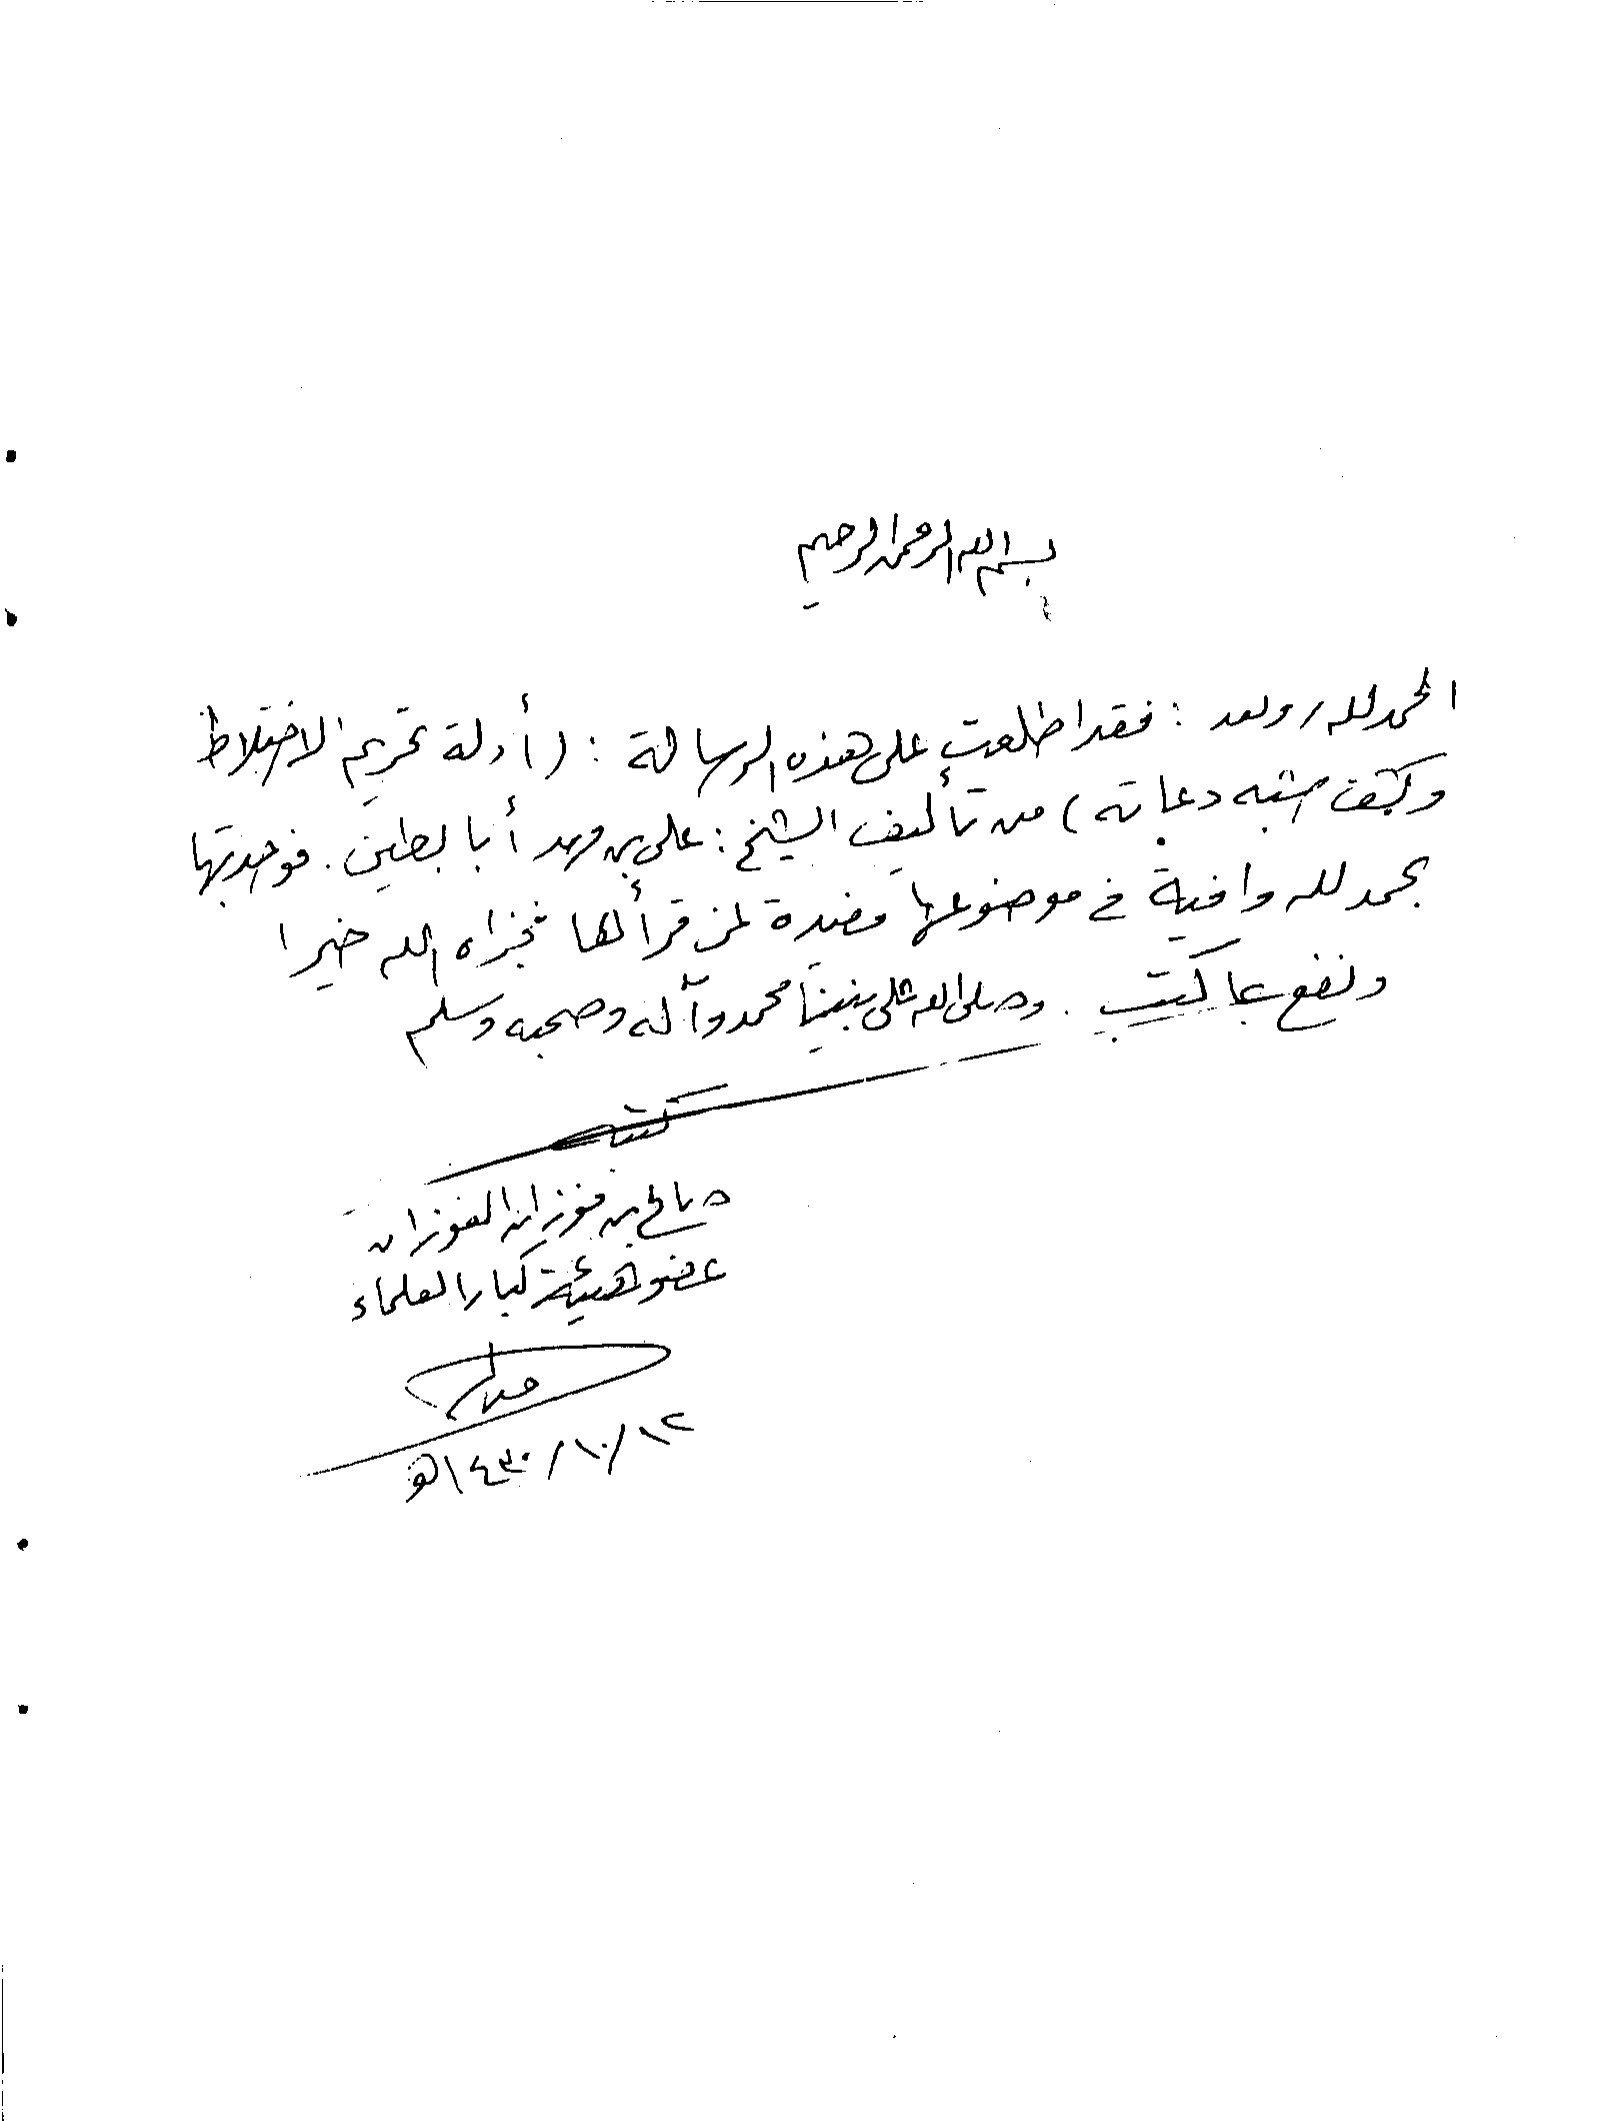 بسم الله الرحمن الرحيم
الحمد لله، وبعد : فقد اطلعت على هذه الرسالة : (أدلة تحريم الاختلاط
وكشف شبه دعاته) من تأليف الشيخ : علي بن فهد أبا بطين . فوجدتها
بحمد لله وافية في موضوعها مفيدة لمن قرأها فجزاه الله خيرا
ونفع بما كتب . وصلى الله على نبينا محمد وآله وصحبه وسلم
كتبه
صالح بن فوزان الفوزان
عضو هيئة كبار العلماء
١٤٣٠/١٠/١٢هـ